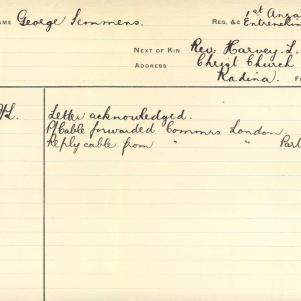 AME George Semmens. REG. &C 1st Anza
Entrenchin
NEXT OF KIN Rev. Harvey. L.
ADDRESS Christ Church
Kadina.
/L. Letter acknowledged.
P/Cable forwarded Commrs London
Reply cable from " " Part